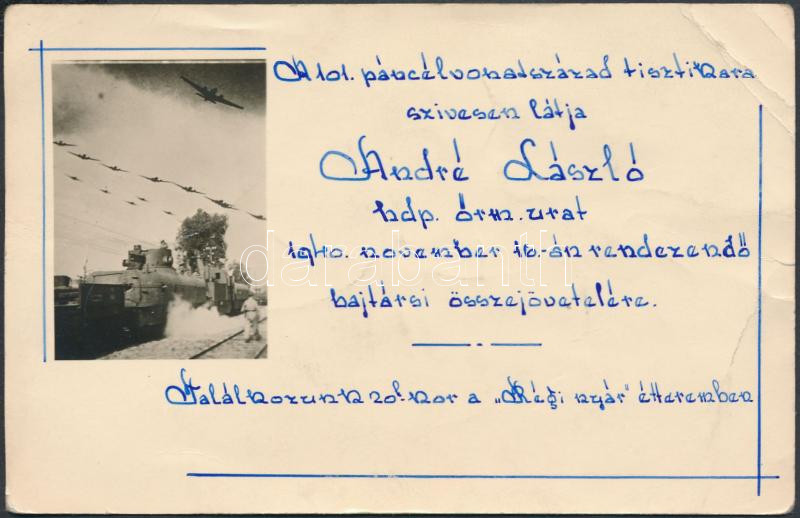 A 101. páncélvonatszázad tisztikara
szivesen látja
André László
hdp. őrm. urat
1940. november 16.-án rendezendő
bajtársi összejövetelére.
Találkozunk 20h-kor a „Régi nyár" étteremben
darabanth